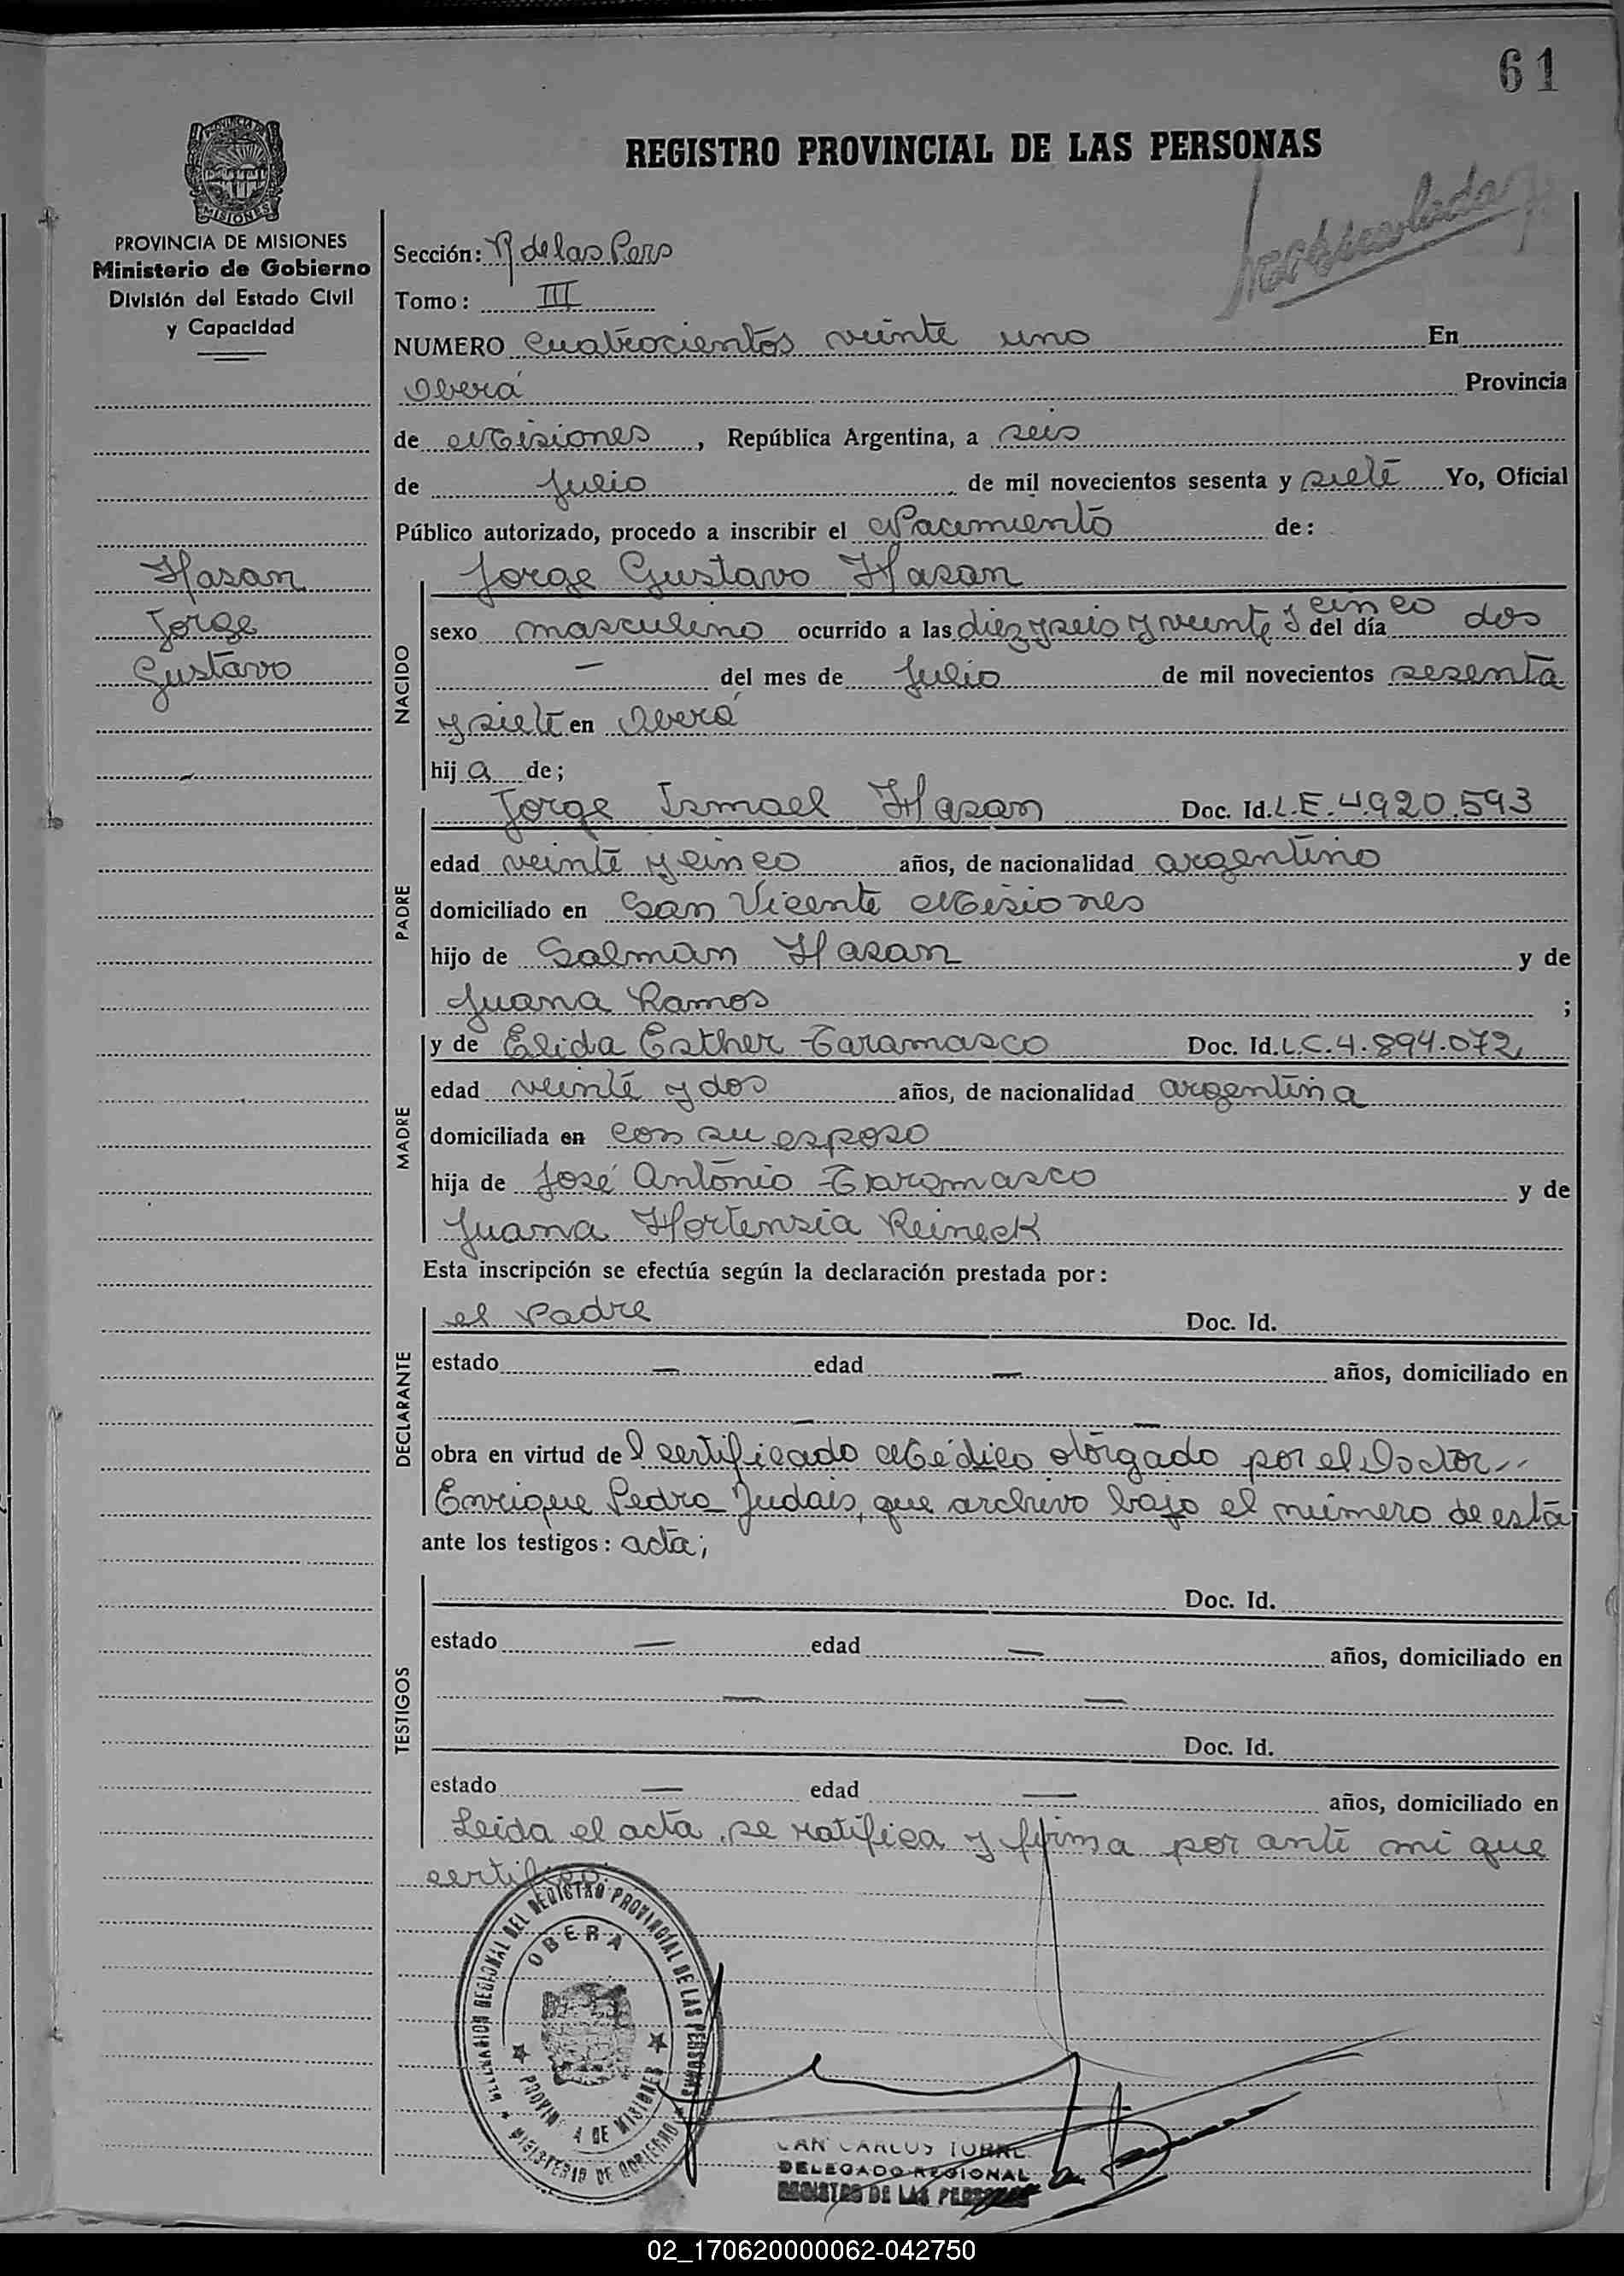 61
REGISTRO PROVINCIAL DE LAS PERSONAS
PROVINCIA DE MISIONES
Ministerio de Gobierno
División del Estado Civil
y Capacidad
Hasan
Jorge
Gustavo
Sección: R de las Pers
Tomo: III
NUMERO cuatrocientos veinte uno En
Oberá Provincia
de Misiones, República Argentina, a seis
de Julio de mil novecientos sesenta y siete Yo, Oficial
Público autorizado, procedo a inscribir el Nacimiento de:
NACIDO
Jorge Gustavo Hasan
sexo masculino ocurrido a las diez y seis y veinte y cinco del día dos
— del mes de Julio de mil novecientos sesenta
y siete en Oberá
hij a de;
PADRE
Jorge Ismael Hasan Doc. Id. L.E. 4.920.593
edad veinte y cinco años, de nacionalidad argentino
domiciliado en San Vicente Misiones
hijo de Salmán Hasan y de
Juana Ramos ;
MADRE
y de Elida Esther Taramasco Doc. Id. L.C. 4.894.072
edad veinte y dos años, de nacionalidad argentina
domiciliada en con su esposo
hija de José Antonio Taramasco y de
Juana Hortensia Reineck
Esta inscripción se efectúa según la declaración prestada por:
DECLARANTE
el Padre Doc. Id.
estado — edad — años, domiciliado en
— —
obra en virtud del certificado Médico otorgado por el Doctor
Enrique Pedro Judais, que archivo bajo el número de esta
ante los testigos: acta;
TESTIGOS
Doc. Id.
estado — edad — años, domiciliado en
— —
Doc. Id.
estado — edad — años, domiciliado en
Leida el acta, se ratifica y firma por ante mi que
certifico.
DELEGACION REGIONAL DEL REGISTRO PROVINCIAL DE LAS PERSONAS
OBERA
MINISTERIO DE GOBIERNO
DE MISIONES
CARLOS
DELEGADO REGIONAL
REGISTRO DE LAS PERSONAS
02_170620000062-042750